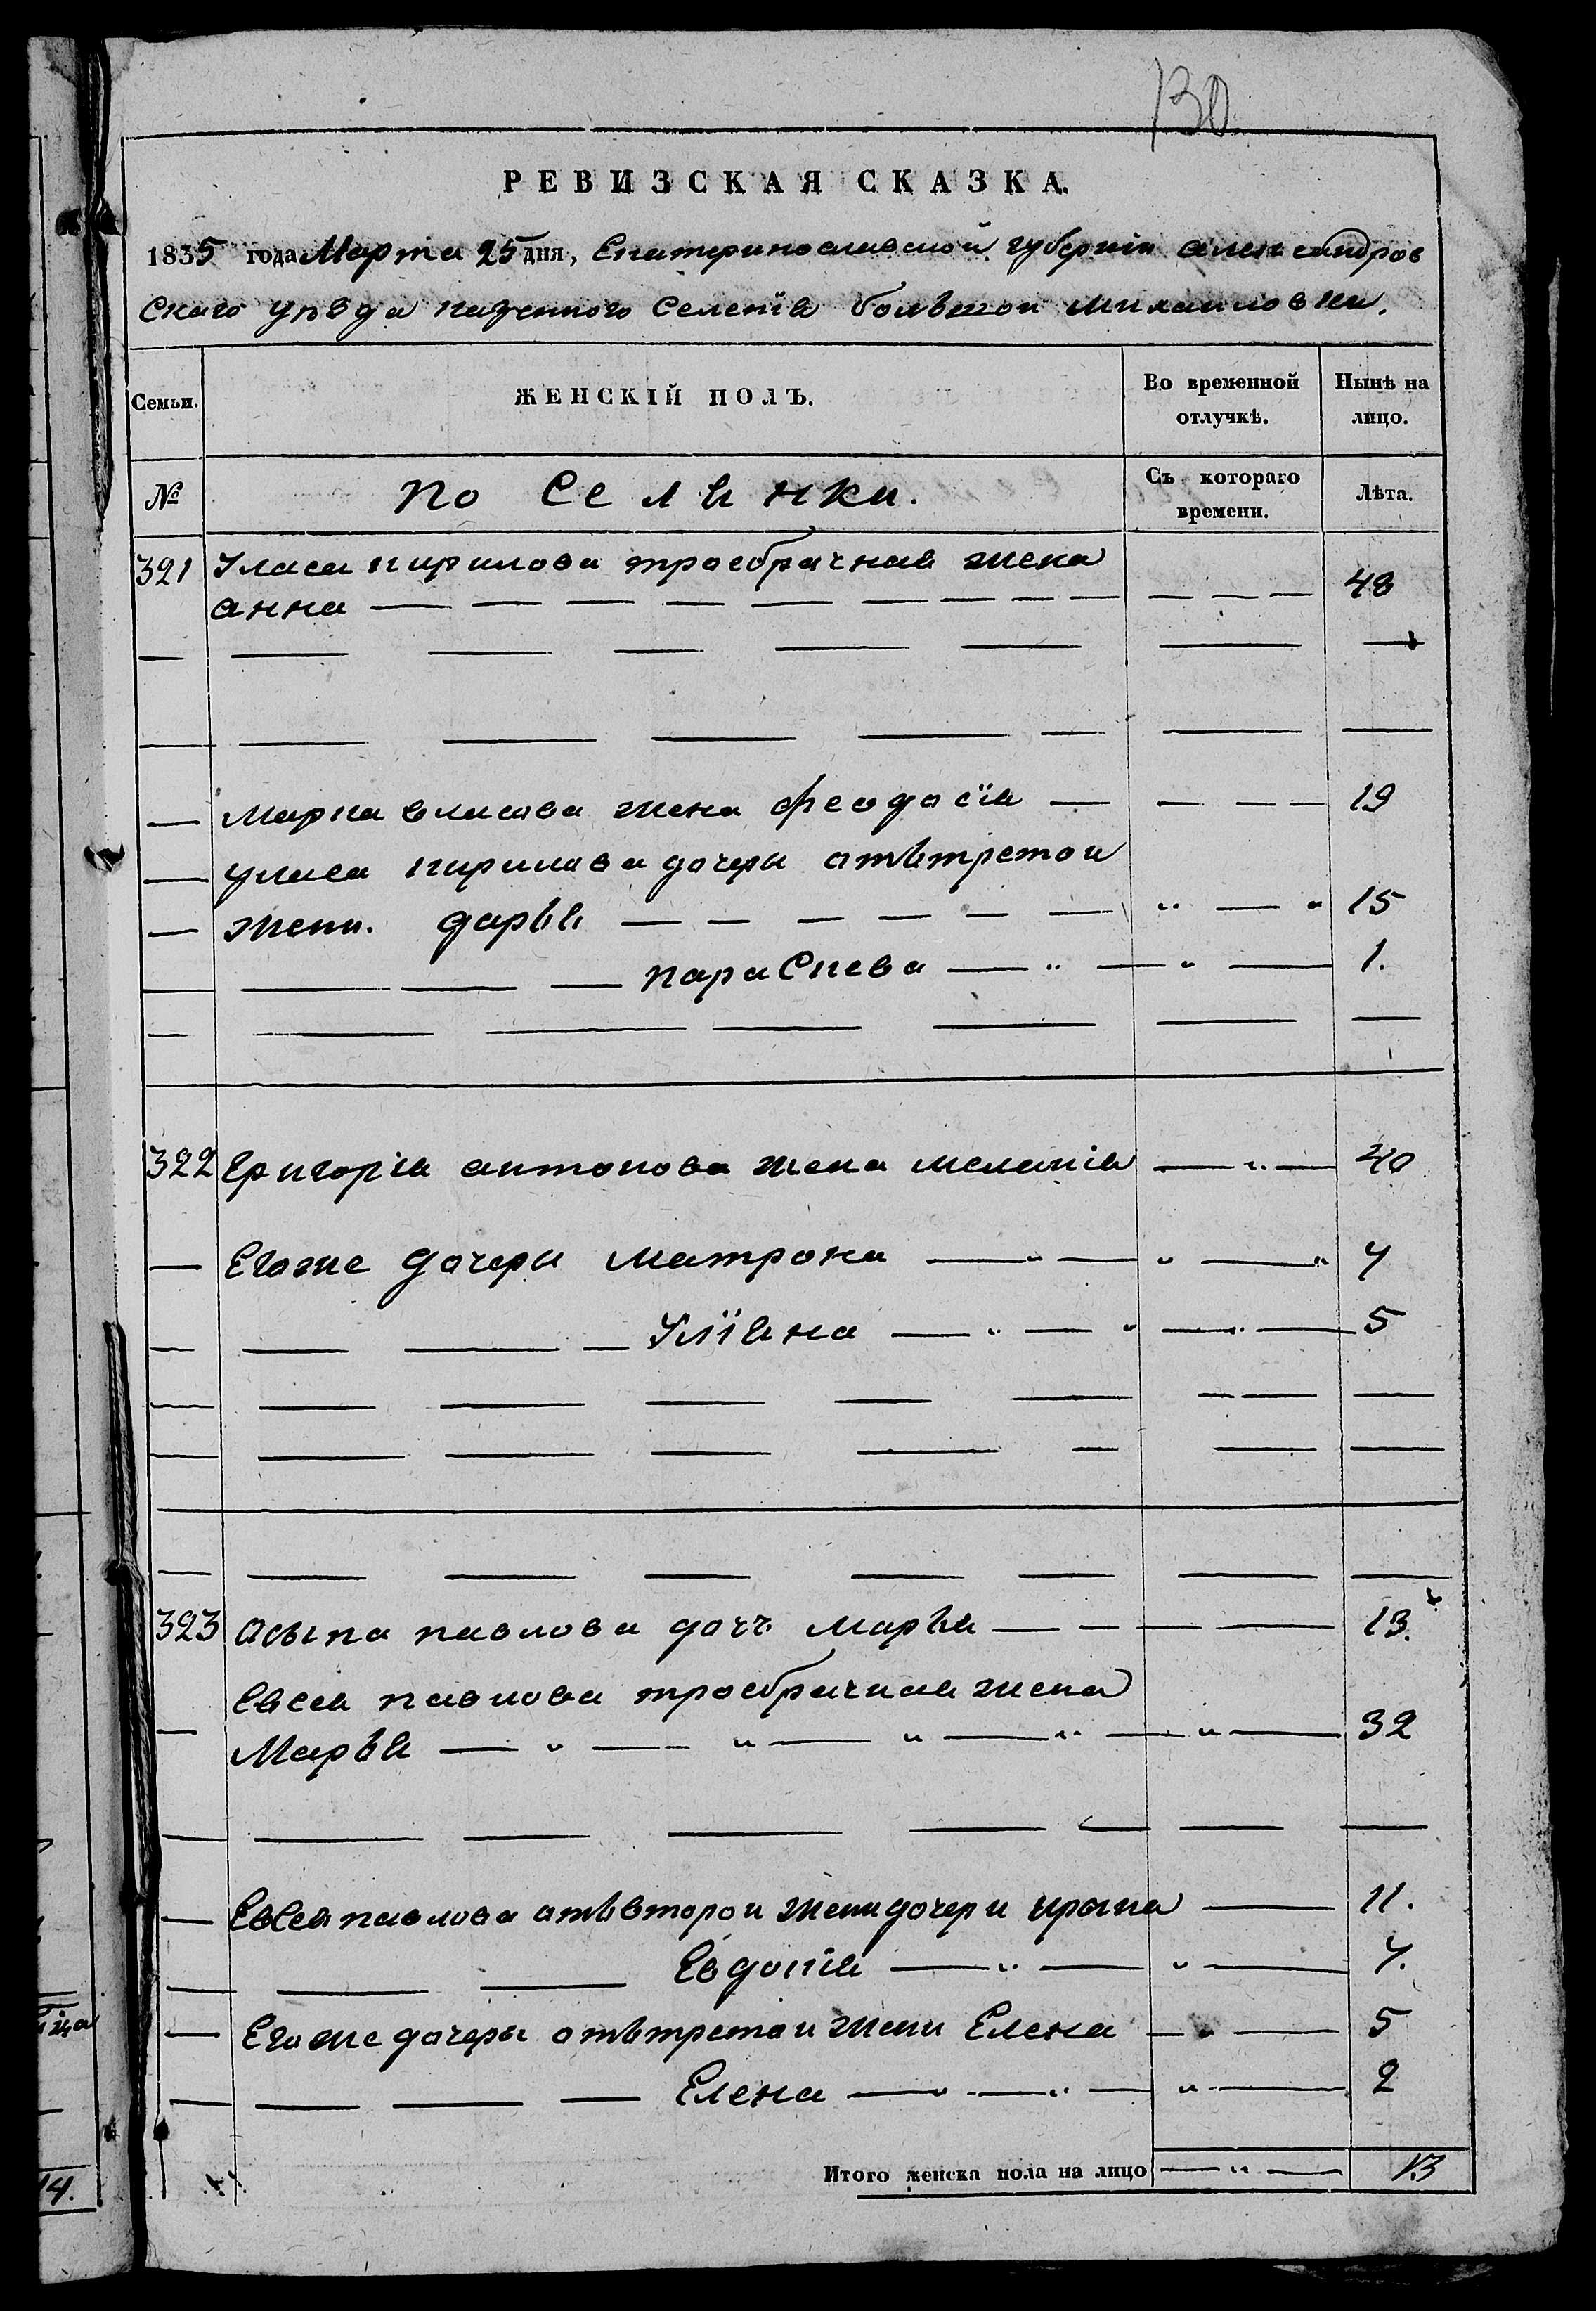 130.
РЕВИЗСКАЯ СКАЗКА.
1835 года Марта 25 дня, Екатеринославской губернїи александров
Скаго уѣзда казенного Селенїя больтой михаиловки.
Семьи.
ЖЕНСКІЙ ПОЛЪ.
Во временной отлучкѣ.
Нынѣ на лицо.
№
по Селянки.
Съ котораго времени.
Лѣта.
321 Уласа кирилова троебрачная жена
анна — — — 48
Марка власова жена феодосїя — 19
уласа кирилова дочеры отътретои
жени. даръя — — — 15
параскева — „ — „ — 1.
322 Григорїя антонова жена меланїя — „ — 40
Егоже дочеры матрона — „ — „ — „ 7
Улїяна — „ — „ — „ — 5
323 Осыпа павлова дочъ маръя — — 13.
Евсея павлова троебрачная жена
Маръя — „ — „ — „ — „ — „ — 32
Евсея павлова отъвторои жени дочери ирына — 11.
Евдокїя — „ — „ — 7.
Егоже дочеры отътретои жени Елена — „ — 5
Елена — „ — „ — „ — 2
Итого женска пола на лицо — „ — 13
14.